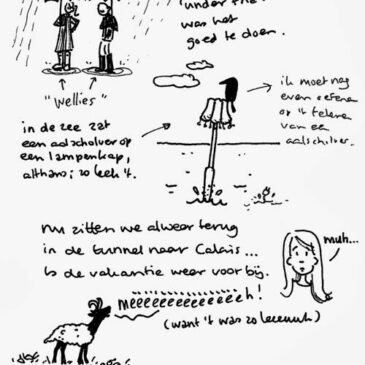 'under the'
was het
goed te doen.
"wellies"
in de zee zat
een aalscholver op
een lampenkap,
althans; zo leek 't.
ik moet nog
even oefenen
op 't tekenen
van een
aalscholver.
nu zitten we alweer terug
in de tunnel naar Calais...
is de vakantie weer voorbij.
muh...
meeeeeeeeeeeeeh!
(want 't was zo leeeuuk)